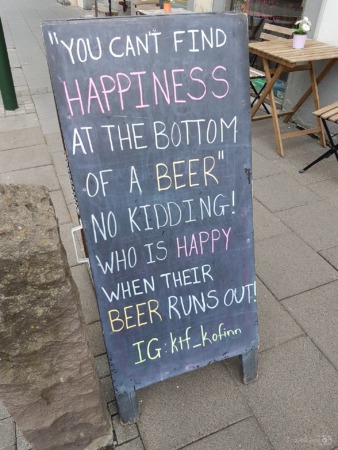 "YOU CAN'T FIND
HAPPINESS
AT THE BOTTOM
OF A BEER"
NO KIDDING!
WHO IS HAPPY
WHEN THEIR
BEER RUNS OUT!
IG: ktf_kofinn